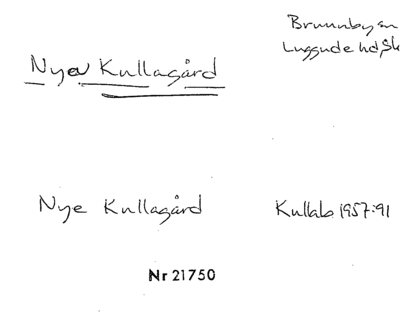 Brunnby sn
Luggude hd, Sk
Nya Kullagård
Nye Kullagård
Kullab 1957:91
Nr 21750